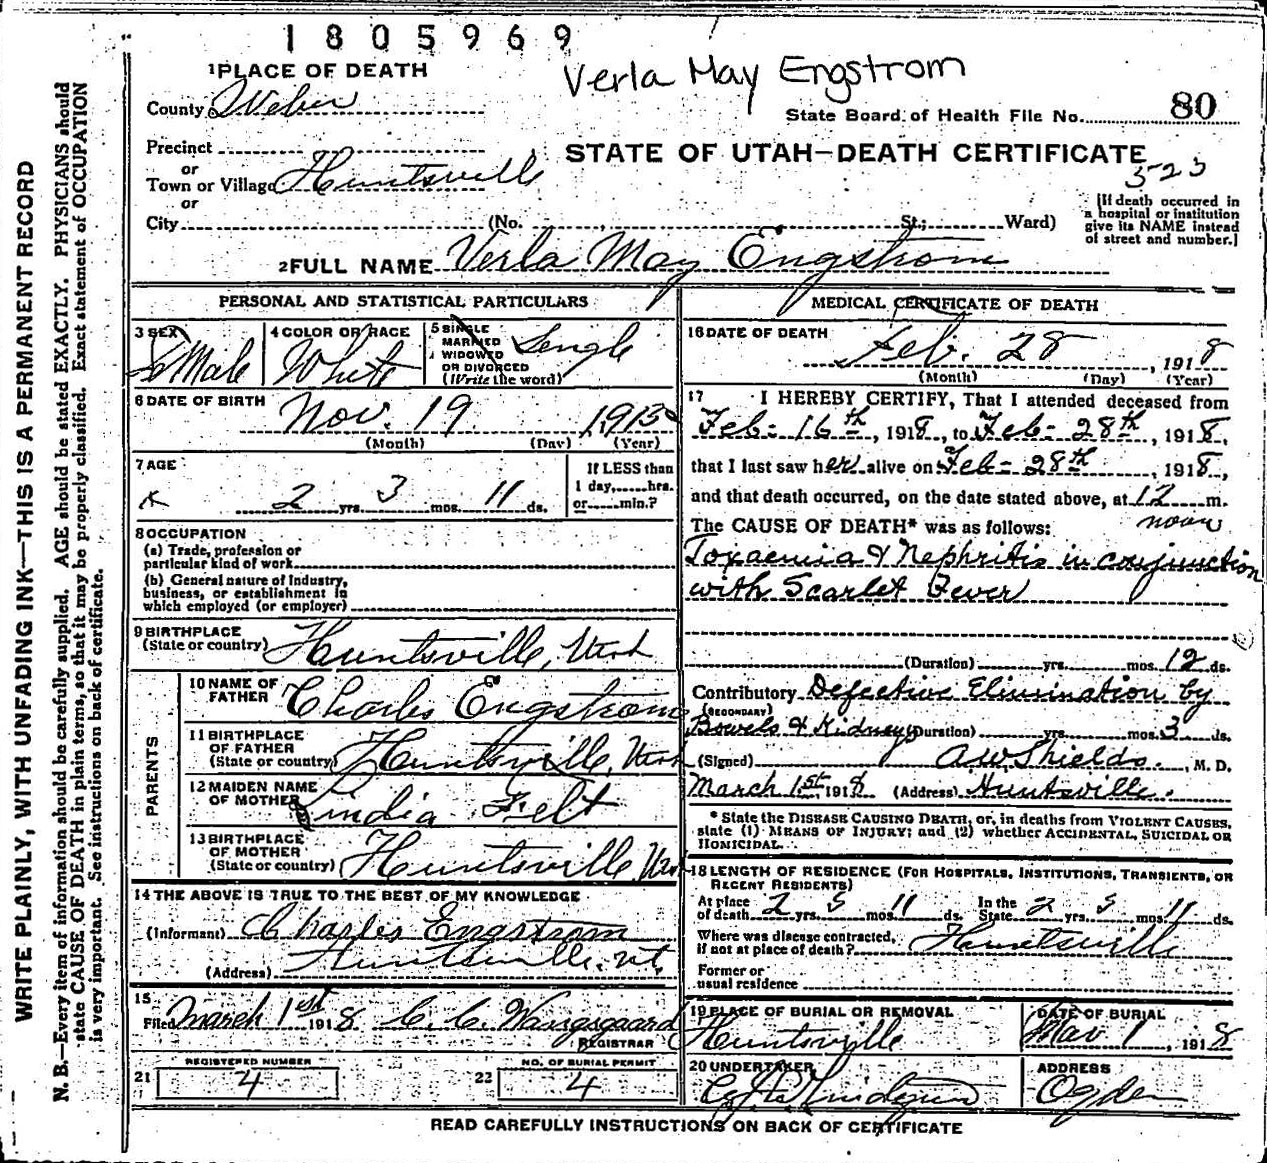 1805969
Verla May Engstrom
1 PLACE OF DEATH
County Weber
State Board of Health File No. 80
Precinct
STATE OF UTAH—DEATH CERTIFICATE
or
Town or Village Huntsville
523
or
City (No. St.; Ward)
[If death occurred in
a hospital or institution
give its NAME instead
of street and number.]
2 FULL NAME Verla May Engstrom
PERSONAL AND STATISTICAL PARTICULARS
3 SEX
feMale
4 COLOR OR RACE
White
5 SINGLE
MARRIED
WIDOWED
OR DIVORCED
(Write the word)
Single
6 DATE OF BIRTH
Nov. 19 1915
(Month) (Day) (Year)
7 AGE
2 yrs. 3 mos. 11 ds.
If LESS than
1 day, hrs.
or min.?
8 OCCUPATION
(a) Trade, profession or
particular kind of work
(b) General nature of Industry,
business, or establishment in
which employed (or employer)
9 BIRTHPLACE
(State or country) Huntsville, Utah
PARENTS
10 NAME OF
FATHER Charles Engstrom
11 BIRTHPLACE
OF FATHER
(State or country) Huntsville, Utah
12 MAIDEN NAME
OF MOTHER Lindia Felt
13 BIRTHPLACE
OF MOTHER
(State or country) Huntsville, Utah
14 THE ABOVE IS TRUE TO THE BEST OF MY KNOWLEDGE
(Informant) Charles Engstrom
(Address) Huntsville. Ut.
15
Filed March 1st 1918 C. C. Wangsgaard
REGISTRAR
REGISTERED NUMBER
21 4
NO. OF BURIAL PERMIT
22 4
MEDICAL CERTIFICATE OF DEATH
16 DATE OF DEATH
Feb. 28, 1918
(Month) (Day) (Year)
17 I HEREBY CERTIFY, That I attended deceased from
Feb- 16th, 1918, to Feb- 28th, 1918,
that I last saw her alive on Feb- 28th, 1918,
and that death occurred, on the date stated above, at 12 m.
noon
The CAUSE OF DEATH* was as follows:
Toxaemia & Nephritis in conjunction
with Scarlet Fever
(Duration) yrs. mos. 12 ds.
Contributory Defective Elimination by
(SECONDARY)
Bowels & Kidneys (Duration) yrs. mos. 3 ds.
(Signed) A W Shields., M. D.
March 1st, 1918 (Address) Huntsville.
* State the DISEASE CAUSING DEATH, or, in deaths from VIOLENT CAUSES,
state (1) MEANS OF INJURY; and (2) whether ACCIDENTAL, SUICIDAL OR
HOMICIDAL.
18 LENGTH OF RESIDENCE (FOR HOSPITALS, INSTITUTIONS, TRANSIENTS, OR
RECENT RESIDENTS)
At place
of death 2 yrs. 3 mos. 11 ds.
In the
State 2 yrs. 3 mos. 11 ds.
Where was disease contracted,
if not at place of death? Huntsville
Former or
usual residence
19 PLACE OF BURIAL OR REMOVAL
Huntsville
DATE OF BURIAL
Mar 1, 1918
20 UNDERTAKER
ADDRESS
Ogden
READ CAREFULLY INSTRUCTIONS ON BACK OF CERTIFICATE
WRITE PLAINLY, WITH UNFADING INK—THIS IS A PERMANENT RECORD
N. B.—Every item of information should be carefully supplied. AGE should be stated EXACTLY. PHYSICIANS should
state CAUSE OF DEATH in plain terms, so that it may be properly classified. Exact statement of OCCUPATION
is very important. See instructions on back of certificate.